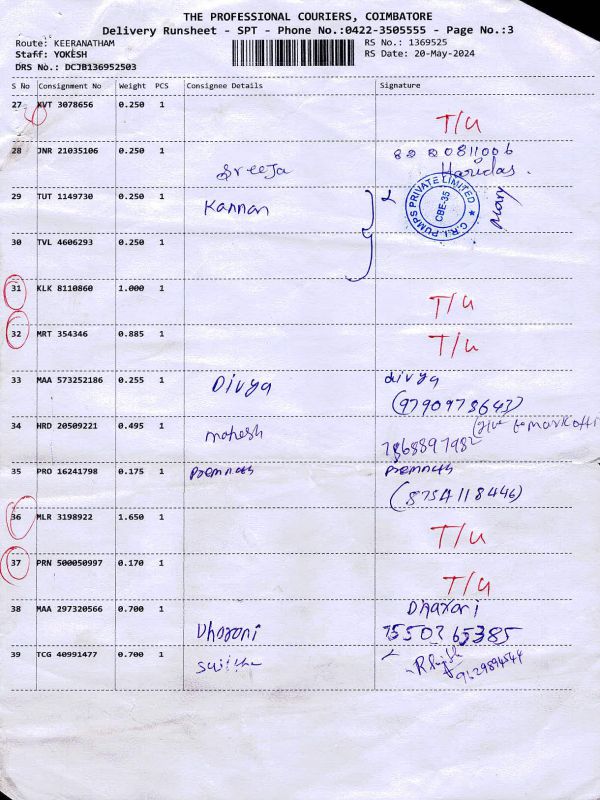 THE PROFESSIONAL COURIERS, COIMBATORE
Delivery Runsheet - SPT - Phone No.:0422-3505555 - Page No.:3
Route: KEERANATHAM
RS No.: 1369525
Staff: YOKESH
RS Date: 20-May-2024
DRS No.: DCJB136952503
S No Consignment No Weight PCS Consignee Details Signature
27 KVT 3078656 0.250 1 T/U
28 JNR 21035106 0.250 1 Sreeja Haridas
29 TUT 1149730 0.250 1 Kannan
C.R.I. PUMPS PRIVATE LIMITED
CBE-35
Mary
30 TVL 4606293 0.250 1
31 KLK 8110860 1.000 1 T/U
32 MRT 354346 0.885 1 T/U
33 MAA 573252186 0.255 1 Divya divya
(9790978643)
34 HRD 20509221 0.495 1 mahesh 7868897982
35 PRO 16241798 0.175 1 premnath premnath
(8754118446)
36 MLR 3198922 1.650 1 T/U
37 PRN 500050997 0.170 1 T/U
38 MAA 297320566 0.700 1 Dharani Dharani
7550265385
39 TCG 40991477 0.700 1
9629894544